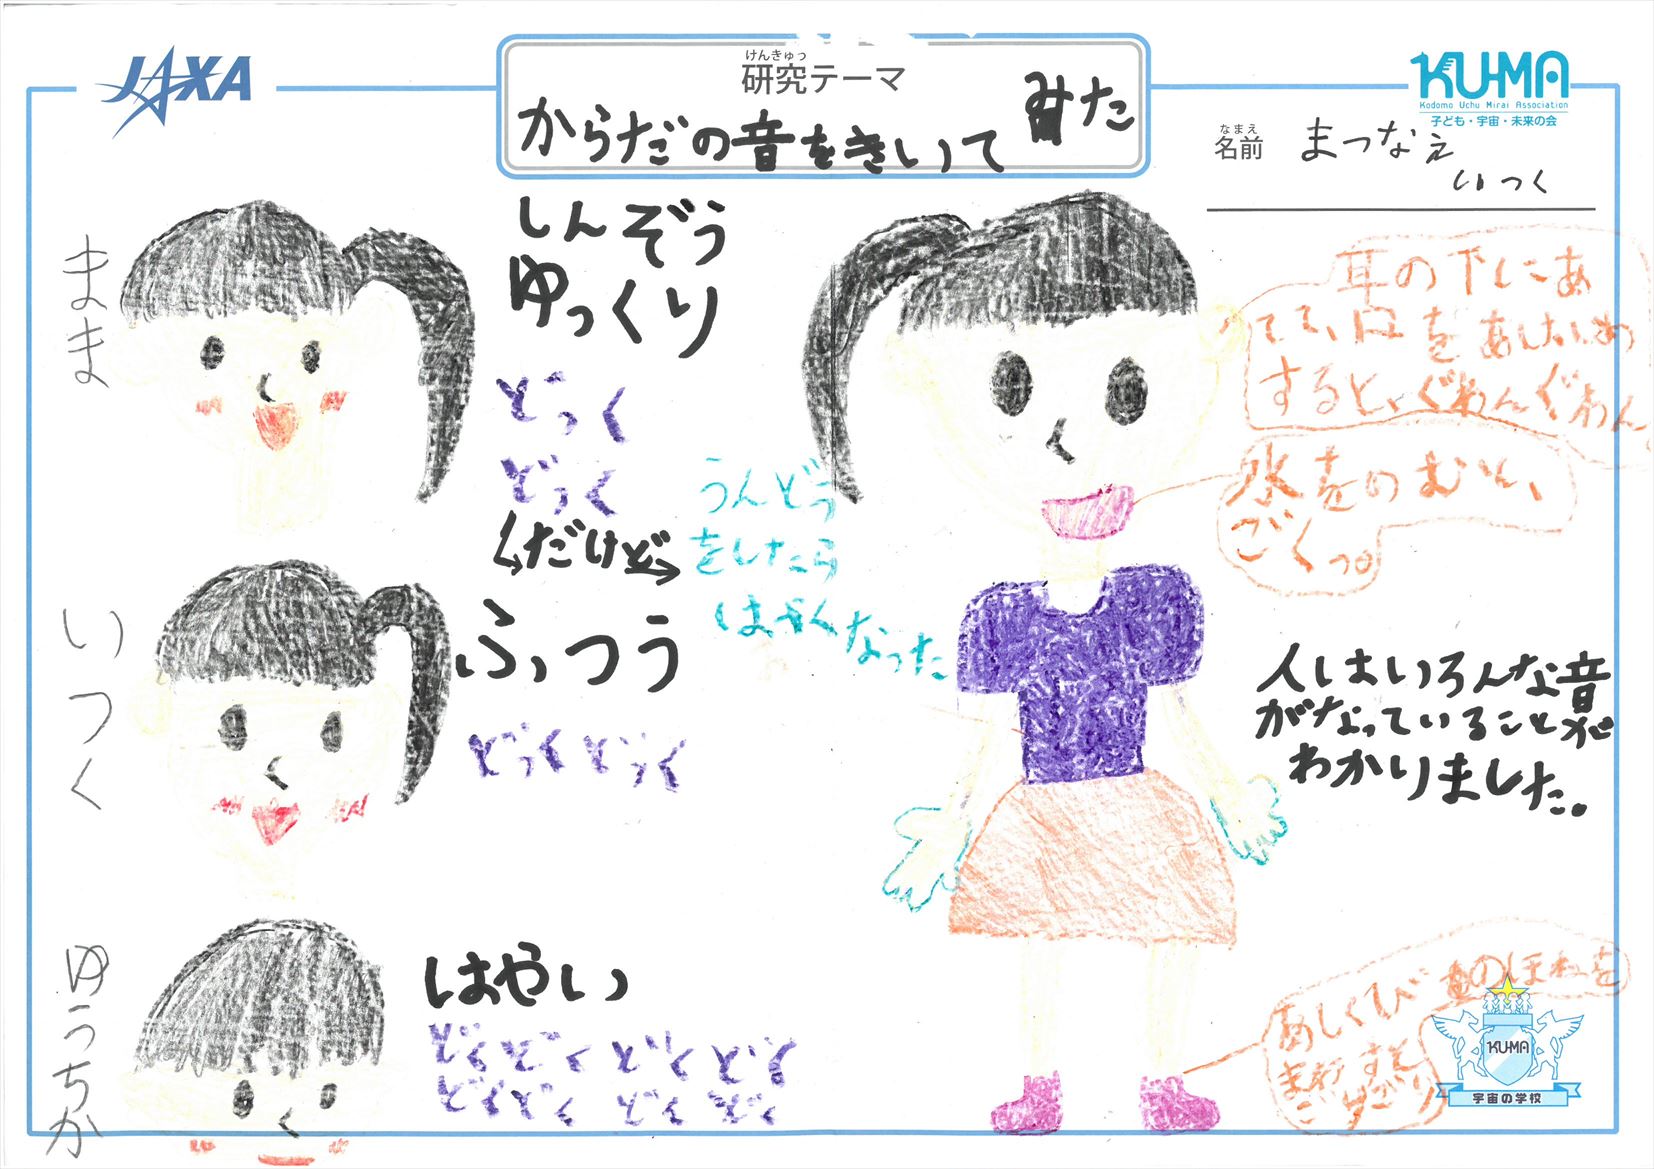 JAXA
けんきゅう
研究テーマ
からだの音をきいてみた
KU-MA
Kodomo Uchu Mirai Association
子ども・宇宙・未来の会
なまえ
名前
まつなえ
いつく
まま
しんぞう
ゆっくり
どっく
どっく
だけど
うんどう
をしたら
はやくなった
いつく
ふつう
どっくどっく
ゆうちか
はやい
耳の下にあ
てて、口をあけしめ
すると、ぐわんぐわん。
水をのむと、
ごくっ。
人はいろんな音
がなっていることが
わかりました。
あしくびのほねを
まわすと
KU-MA
宇宙の学校